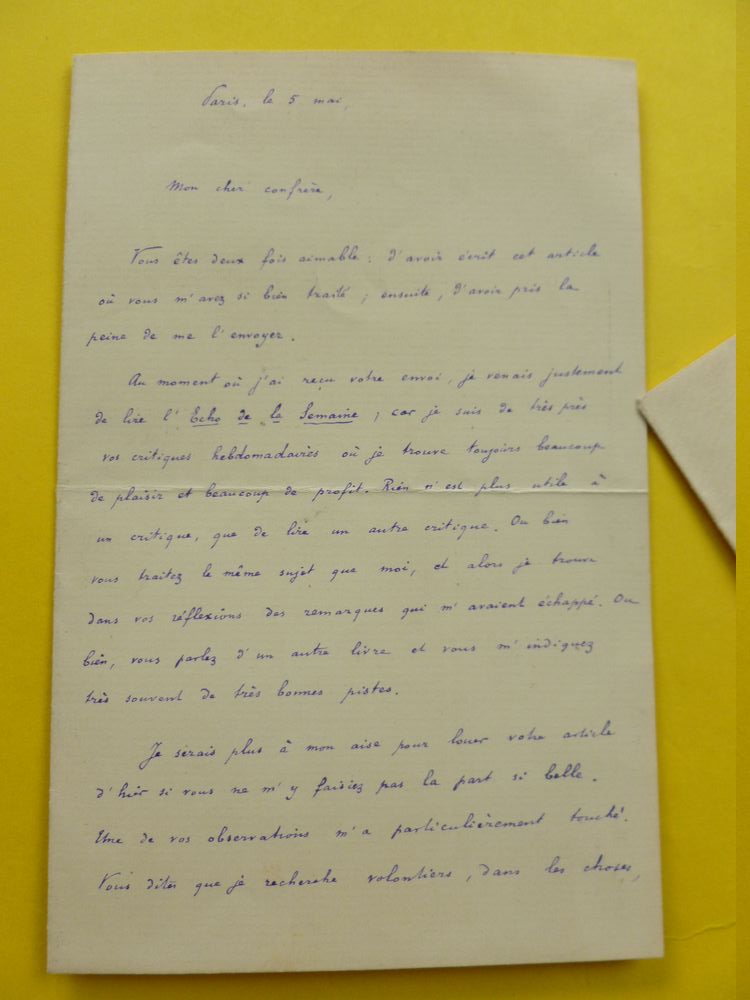 Paris, le 5 mai,
Mon cher confrère,
Vous êtes deux fois aimable : d'avoir écrit cet article
où vous m'avez si bien traité ; ensuite, d'avoir pris la
peine de me l'envoyer.
Au moment où j'ai reçu votre envoi, je venais justement
de lire l'Echo de la Semaine ; car je suis de très près
vos critiques hebdomadaires où je trouve toujours beaucoup
de plaisir et beaucoup de profit. Rien n'est plus utile à
un critique, que de lire un autre critique. Ou bien
vous traitez le même sujet que moi, et alors je trouve
dans vos réflexions des remarques qui m'avaient échappé. Ou
bien, vous parlez d'un autre livre et vous m'indiquez
très souvent de très bonnes pistes.
Je serais plus à mon aise pour louer votre article
d'hier si vous ne m'y faisiez pas la part si belle.
Une de vos observations m'a particulièrement touché.
Vous dites que je recherche volontiers, dans les choses,